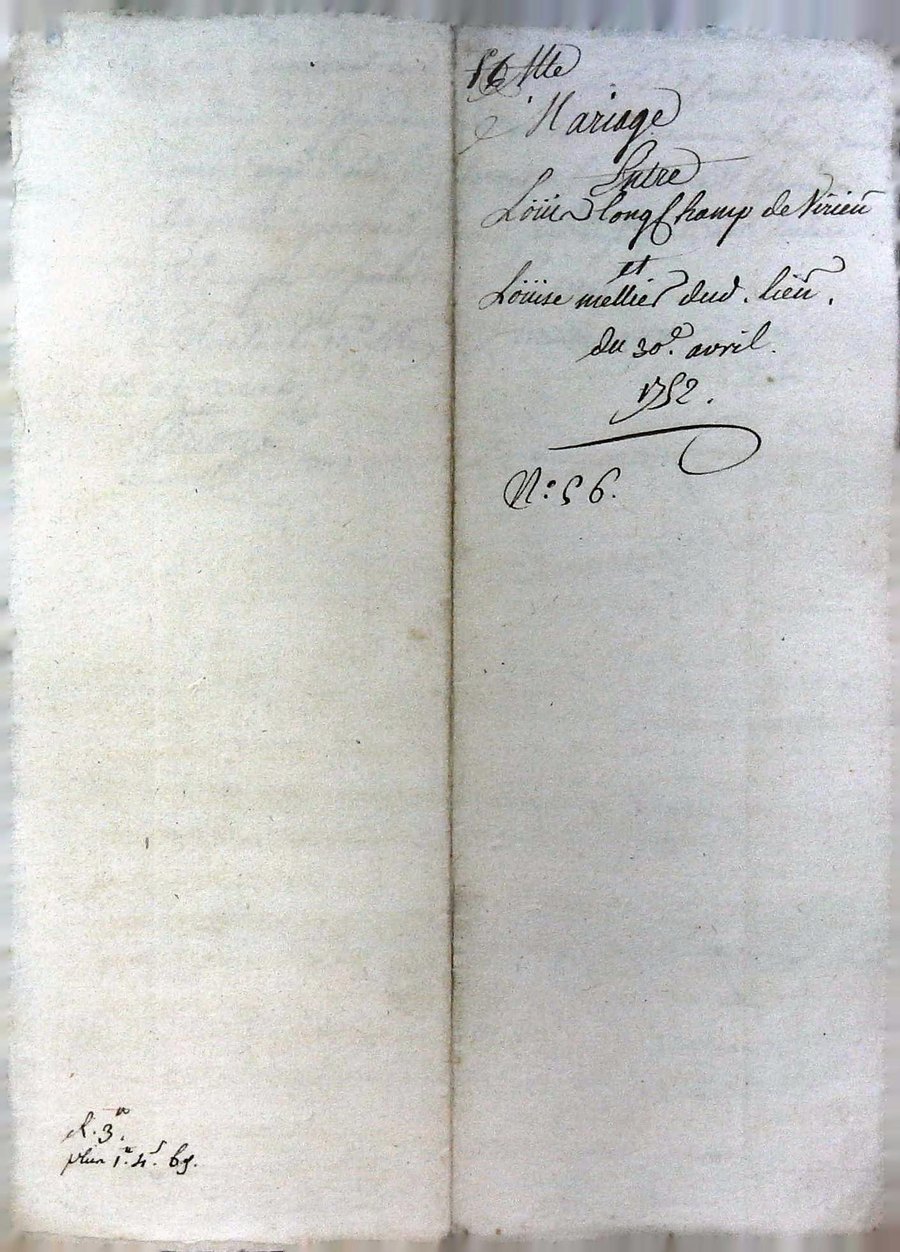 Mariage
Entre
Loüis longchamp de Virieu
et
Loüise mellier dud. lieu.
du 30e. avril.
1752.
N: 56.
R. 3
plus 1. 4s. 6d.